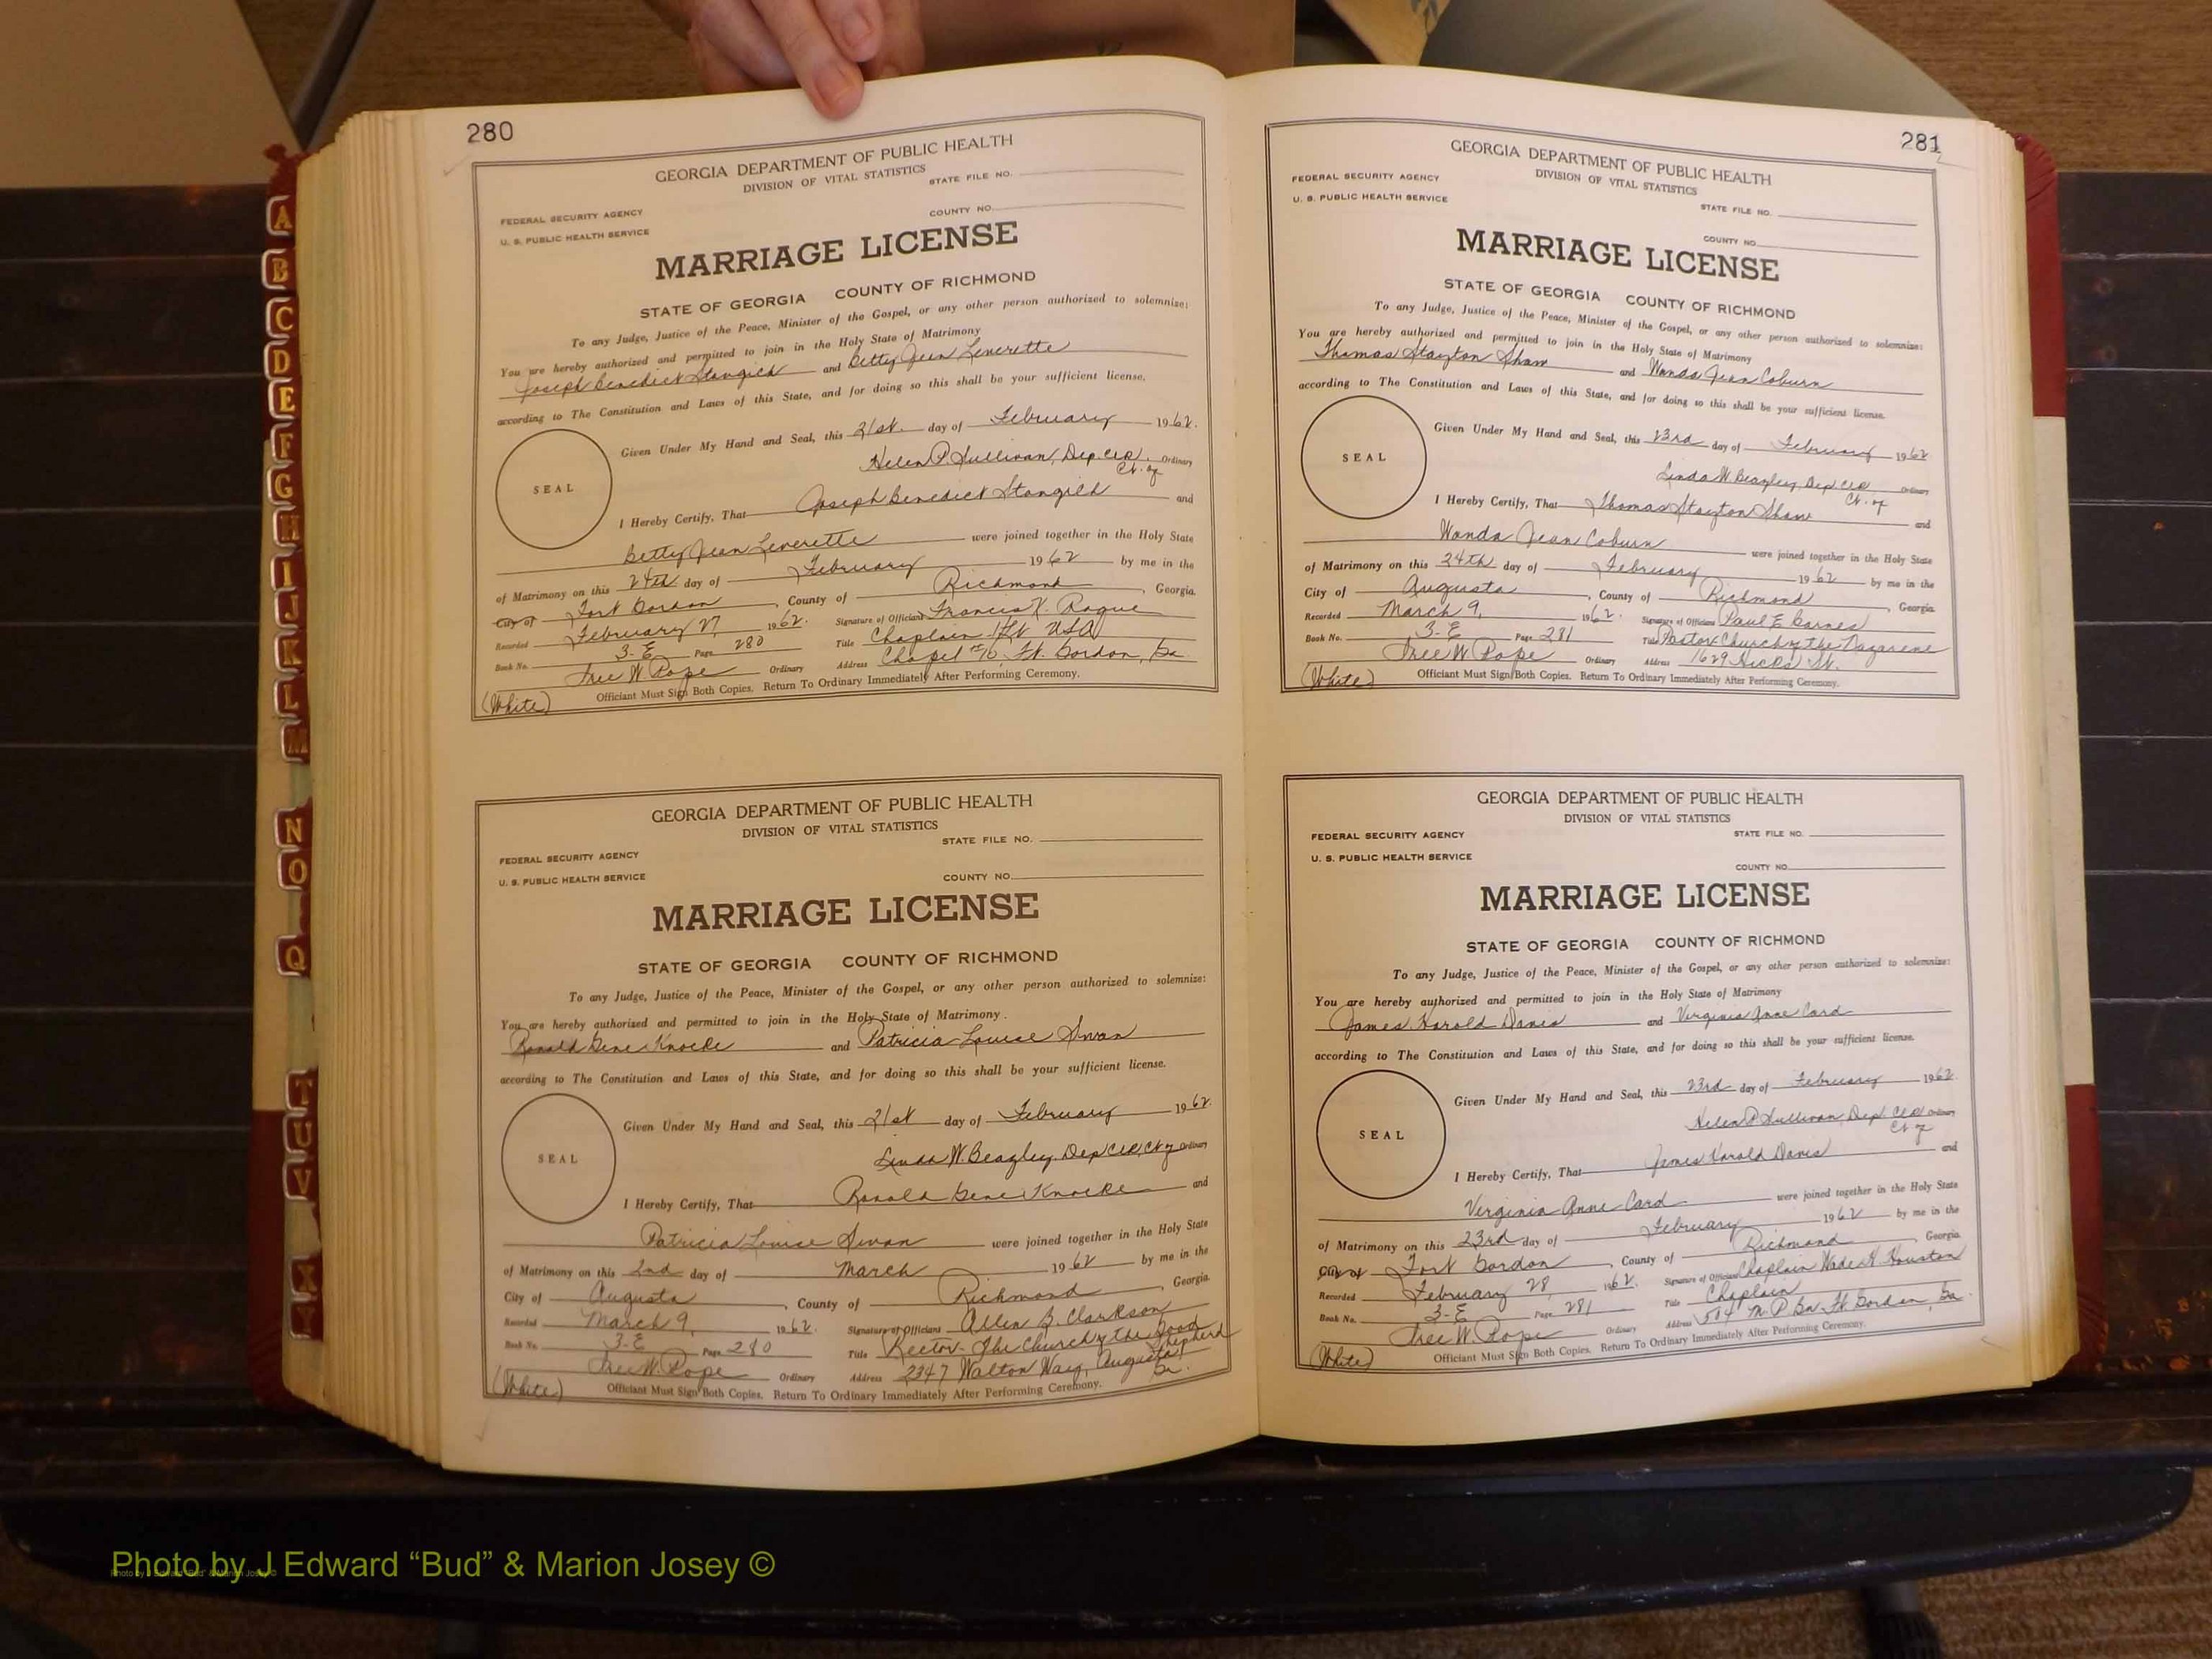 280
GEORGIA DEPARTMENT OF PUBLIC HEALTH
DIVISION OF VITAL STATISTICS
STATE FILE NO.
FEDERAL SECURITY AGENCY
COUNTY NO.
U. S. PUBLIC HEALTH SERVICE
MARRIAGE LICENSE
STATE OF GEORGIA COUNTY OF RICHMOND
To any Judge, Justice of the Peace, Minister of the Gospel, or any other person authorized to solemnize:
You are hereby authorized and permitted to join in the Holy State of Matrimony
Joseph Benedict and Betty Jean Leverette
according to The Constitution and Laws of this State, and for doing so this shall be your sufficient license.
Given Under My Hand and Seal, this 21st day of February 1962.
Helen P. Sullivan, Dep. Clk. Ordinary
Ct. of
SEAL
I Hereby Certify, That Joseph Benedict and
Betty Jean Leverette were joined together in the Holy State
of Matrimony on this 24th day of February 1962 by me in the
City of Fort Gordon, County of Richmond, Georgia.
Recorded February 27 1962. Signature of Officiant Francis X.
Book No. 3-E Page 280 Title Chaplain 1/Lt USA
Tree W. Pope Ordinary Address Chapel #10, Ft. Gordon, Ga.
(White) Officiant Must Sign Both Copies. Return To Ordinary Immediately After Performing Ceremony.
GEORGIA DEPARTMENT OF PUBLIC HEALTH
DIVISION OF VITAL STATISTICS
STATE FILE NO.
FEDERAL SECURITY AGENCY
U. S. PUBLIC HEALTH SERVICE COUNTY NO.
MARRIAGE LICENSE
STATE OF GEORGIA COUNTY OF RICHMOND
To any Judge, Justice of the Peace, Minister of the Gospel, or any other person authorized to solemnize:
You are hereby authorized and permitted to join in the Holy State of Matrimony.
Ronald Gene Knocke and Patricia Louise Swan
according to The Constitution and Laws of this State, and for doing so this shall be your sufficient license.
Given Under My Hand and Seal, this 21st day of February 1962.
Linda W. Beazley, Dep Clk, Ct of Ordinary
SEAL
I Hereby Certify, That Ronald Gene Knocke and
Patricia Louise Swan were joined together in the Holy State
of Matrimony on this 2nd day of March 1962 by me in the
City of Augusta, County of Richmond, Georgia.
Recorded March 9, 1962. Signature of Officiant Allen B. Clarkson
Book No. 3-E Page 280 Title Rector - The Church of the Good Shepherd
Tree W. Pope Ordinary Address 2347 Walton Way, Augusta, Ga.
(White) Officiant Must Sign Both Copies. Return To Ordinary Immediately After Performing Ceremony.
281
GEORGIA DEPARTMENT OF PUBLIC HEALTH
DIVISION OF VITAL STATISTICS
FEDERAL SECURITY AGENCY
U. S. PUBLIC HEALTH SERVICE
STATE FILE NO.
COUNTY NO.
MARRIAGE LICENSE
STATE OF GEORGIA COUNTY OF RICHMOND
To any Judge, Justice of the Peace, Minister of the Gospel, or any other person authorized to solemnize:
You are hereby authorized and permitted to join in the Holy State of Matrimony
Thomas Stayton Shaw and Wanda Jean Coburn
according to The Constitution and Laws of this State, and for doing so this shall be your sufficient license.
Given Under My Hand and Seal, this 23rd day of February 1962
Linda W. Beazley, Dep Clk Ordinary
Ct. of
SEAL
I Hereby Certify, That Thomas Stayton Shaw and
Wanda Jean Coburn were joined together in the Holy State
of Matrimony on this 24th day of February 1962 by me in the
City of Augusta, County of Richmond, Georgia.
Recorded March 9, 1962. Signature of Officiant Paul E Barnes
Book No. 3-E Page 281 Title Pastor Church of the Nazarene
Tree W Pope Ordinary Address 1629 Hicks St.
(White) Officiant Must Sign Both Copies. Return To Ordinary Immediately After Performing Ceremony.
GEORGIA DEPARTMENT OF PUBLIC HEALTH
DIVISION OF VITAL STATISTICS
FEDERAL SECURITY AGENCY STATE FILE NO.
U. S. PUBLIC HEALTH SERVICE
COUNTY NO.
MARRIAGE LICENSE
STATE OF GEORGIA COUNTY OF RICHMOND
To any Judge, Justice of the Peace, Minister of the Gospel, or any other person authorized to solemnize:
You are hereby authorized and permitted to join in the Holy State of Matrimony
James Harold Davis and Virginia Anne Card
according to The Constitution and Laws of this State, and for doing so this shall be your sufficient license.
Given Under My Hand and Seal, this 23rd day of February 1962.
Helen P. Sullivan, Dep. Clk Ordinary
Ct of
SEAL
I Hereby Certify, That James Harold Davis and
Virginia Anne Card were joined together in the Holy State
of Matrimony on this 23rd day of February 1962 by me in the
City of Fort Gordon, County of Richmond, Georgia.
Recorded February 28, 1962. Signature of Officiant Chaplain Wade H. Houston
Book No. 3-E Page 281 Title Chaplain
Tree W. Pope Ordinary Address 504 M.P. Bn Ft Gordon, Ga.
(White) Officiant Must Sign Both Copies. Return To Ordinary Immediately After Performing Ceremony.
A
B
C
D
E
F
G
H
I
J
K
L
M
N
O
Q
T
U
V
X
Y
Photo by J Edward “Bud” & Marion Josey ©
Photo by J Edward “Bud” & Marion Josey ©